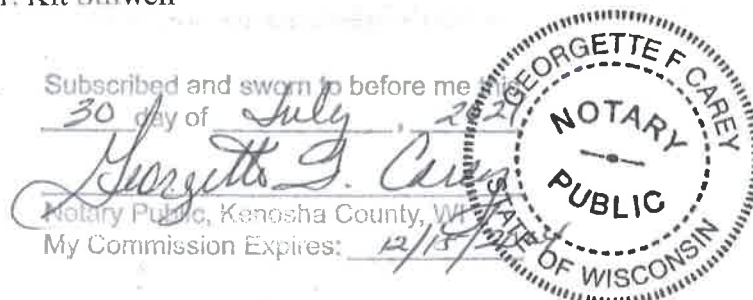 Kit
Subscribed and sworn to before me this
30 day of July, 2021
Georgette F. Carey
Notary Public, Kenosha County, WI
My Commission Expires: 12/15/
GEORGETTE F CAREY
NOTARY
PUBLIC
STATE OF WISCONSIN